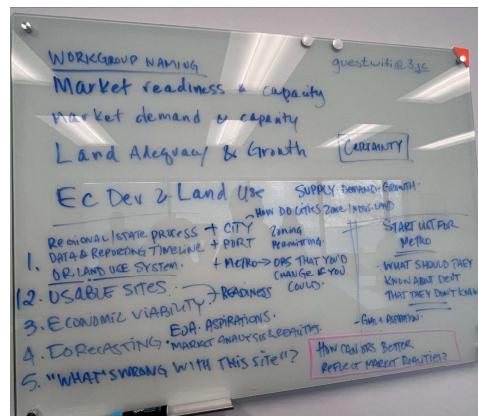 WORKGROUP NAMING
guestwifi@3js
Market readiness & capacity
market demand & capacity
Land Adequacy & Growth
CERTAINTY
Ec Dev & Land Use
SUPPLY·DEMAND·GROWTH·
HOW DO CITIES ZONE / LAND
1. REGIONAL/STATE PROCESS + CITY Zoning
DATA & REPORTING TIMELINE + PORT Permitting
OR LAND USE SYSTEM. + METRO → OPS THAT YOU'D
CHANGE IF YOU
COULD.
START LIST FOR
METRO
- WHAT SHOULD THEY
KNOW ABOUT
THAT THEY DON'T KNOW
2. USABLE SITES. → READINESS
3. ECONOMIC VIABILITY
EOA: ASPIRATIONS.
4. FORECASTING · MARKET ANALYSIS & REALITIES.
5. "WHAT'S WRONG WITH THIS SITE"?
HOW CAN BETTER
REFLECT MARKET REALITIES?